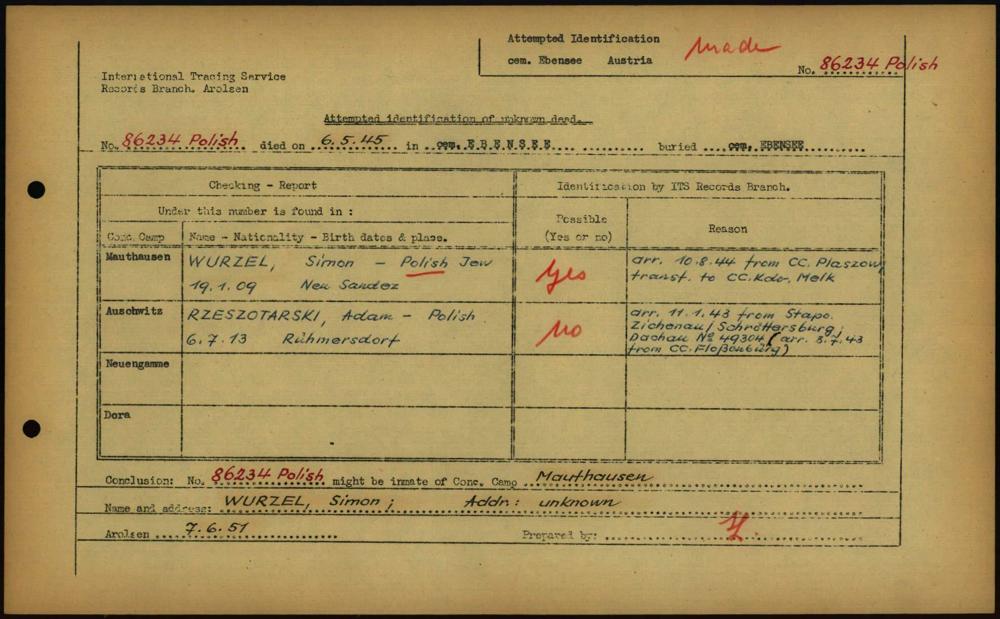 Attempted Identification
cem. Ebensee Austria
made
No. 86234 Polish
International Tracing Service
Records Branch. Arolsen
Attempted identification of unknown dead.
No. 86234 Polish died on 6.5.45 in cem. EBENSEE buried cem. EBENSEE
Checking - Report
Identification by ITS Records Branch.
Under this number is found in :
Possible
(Yes or no)
Reason
Conc. Camp
Name - Nationality - Birth dates & place.
Mauthausen
WURZEL, Simon - Polish Jew
19.1.09 Neu Sandez
yes
arr. 10.8.44 from CC. Plaszow,
transf. to CC.Kdo, Melk
Auschwitz
RZESZOTARSKI, Adam - Polish
6.7.13 Rühmersdorf
no
arr. 11.1.43 from Stapo.
Zichenau/Schröttersburg;
Dachau No 49304 (arr. 3.7.43
from CC. Floßenbürg)
Neuengamme
Dora
Conclusion: No. 86234 Polish might be inmate of Conc. Camp Mauthausen
Name and address: WURZEL, Simon; Addr: unknown
Arolsen 7.6.51
Prepared by: